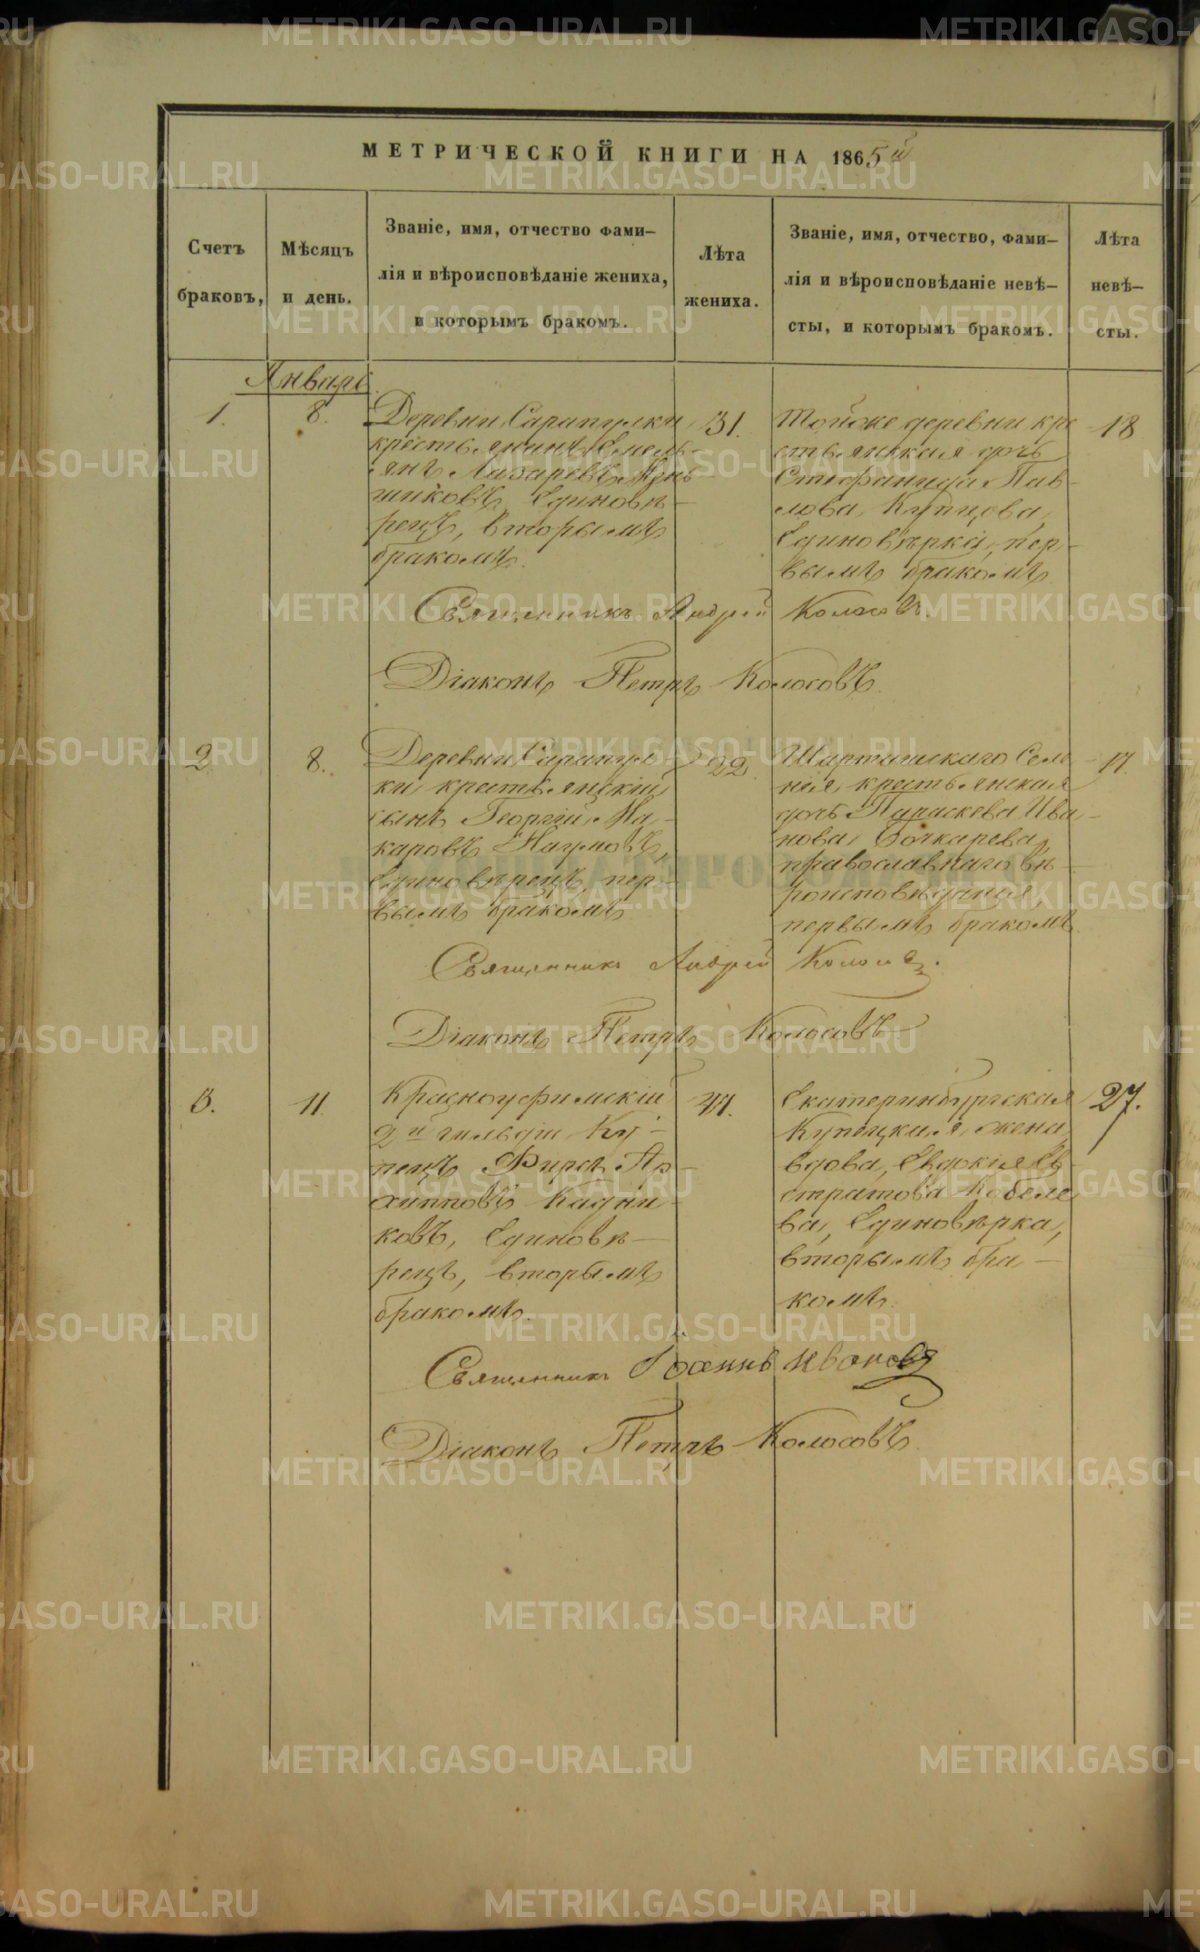 МЕТРИЧЕСКОЙ КНИГИ НА 1865й
Счетъ
браковъ,
Мѣсяцъ
и день.
Званіе, имя, отчество фами-
лія и вѣроисповѣданіе жениха,
и которымъ бракомъ.
Лѣта
жениха.
Званіе, имя, отчество, фами-
лія и вѣроисповѣданіе невѣ-
сты, и которымъ бракомъ.
Лѣта
невѣ-
сты.
Январь
1.
8.
Деревни Сарапулки
крестьянинъ Емель-
янъ Лазаревъ
Единовѣ-
рецъ, вторымъ
бракомъ.
31.
Тойже деревни кре
стьянская дочь
Стефанида Пав-
лова Купцова,
Единовѣрка, пер-
вымъ бракомъ
18
Священникъ Андрей Колосовъ.
Діаконъ Петръ Колосовъ.
2
8.
Деревни Сарапул-
ки крестьянскій
сынъ Георгій Ма-
каровъ Наумовъ,
Единовѣрецъ, пер-
вымъ бракомъ
22.
Шарташскаго Селе
нія крестьянская
дочь Параскева Ива-
нова Бочкарева,
православнаго вѣ-
роисповѣданія
первымъ бракомъ
17.
Священникъ Андрей Колосовъ.
Діаконъ Петръ Колосовъ
3.
11.
Красноуфимскій
2й гильдіи Ку-
пецъ Фирсъ Ар-
хиповъ Кадни-
ковъ, Единовѣ-
рецъ, вторымъ
бракомъ.
47.
Екатеринбургская
Купецкая жена
вдова, Евдокія Ев-
стратова Кобеле
ва, Единовѣрка,
вторымъ бра-
комъ.
27.
Священникъ Іоаннъ Ивановъ
Діаконъ Петръ Колосовъ.
METRIKI.GASO-URAL.RU